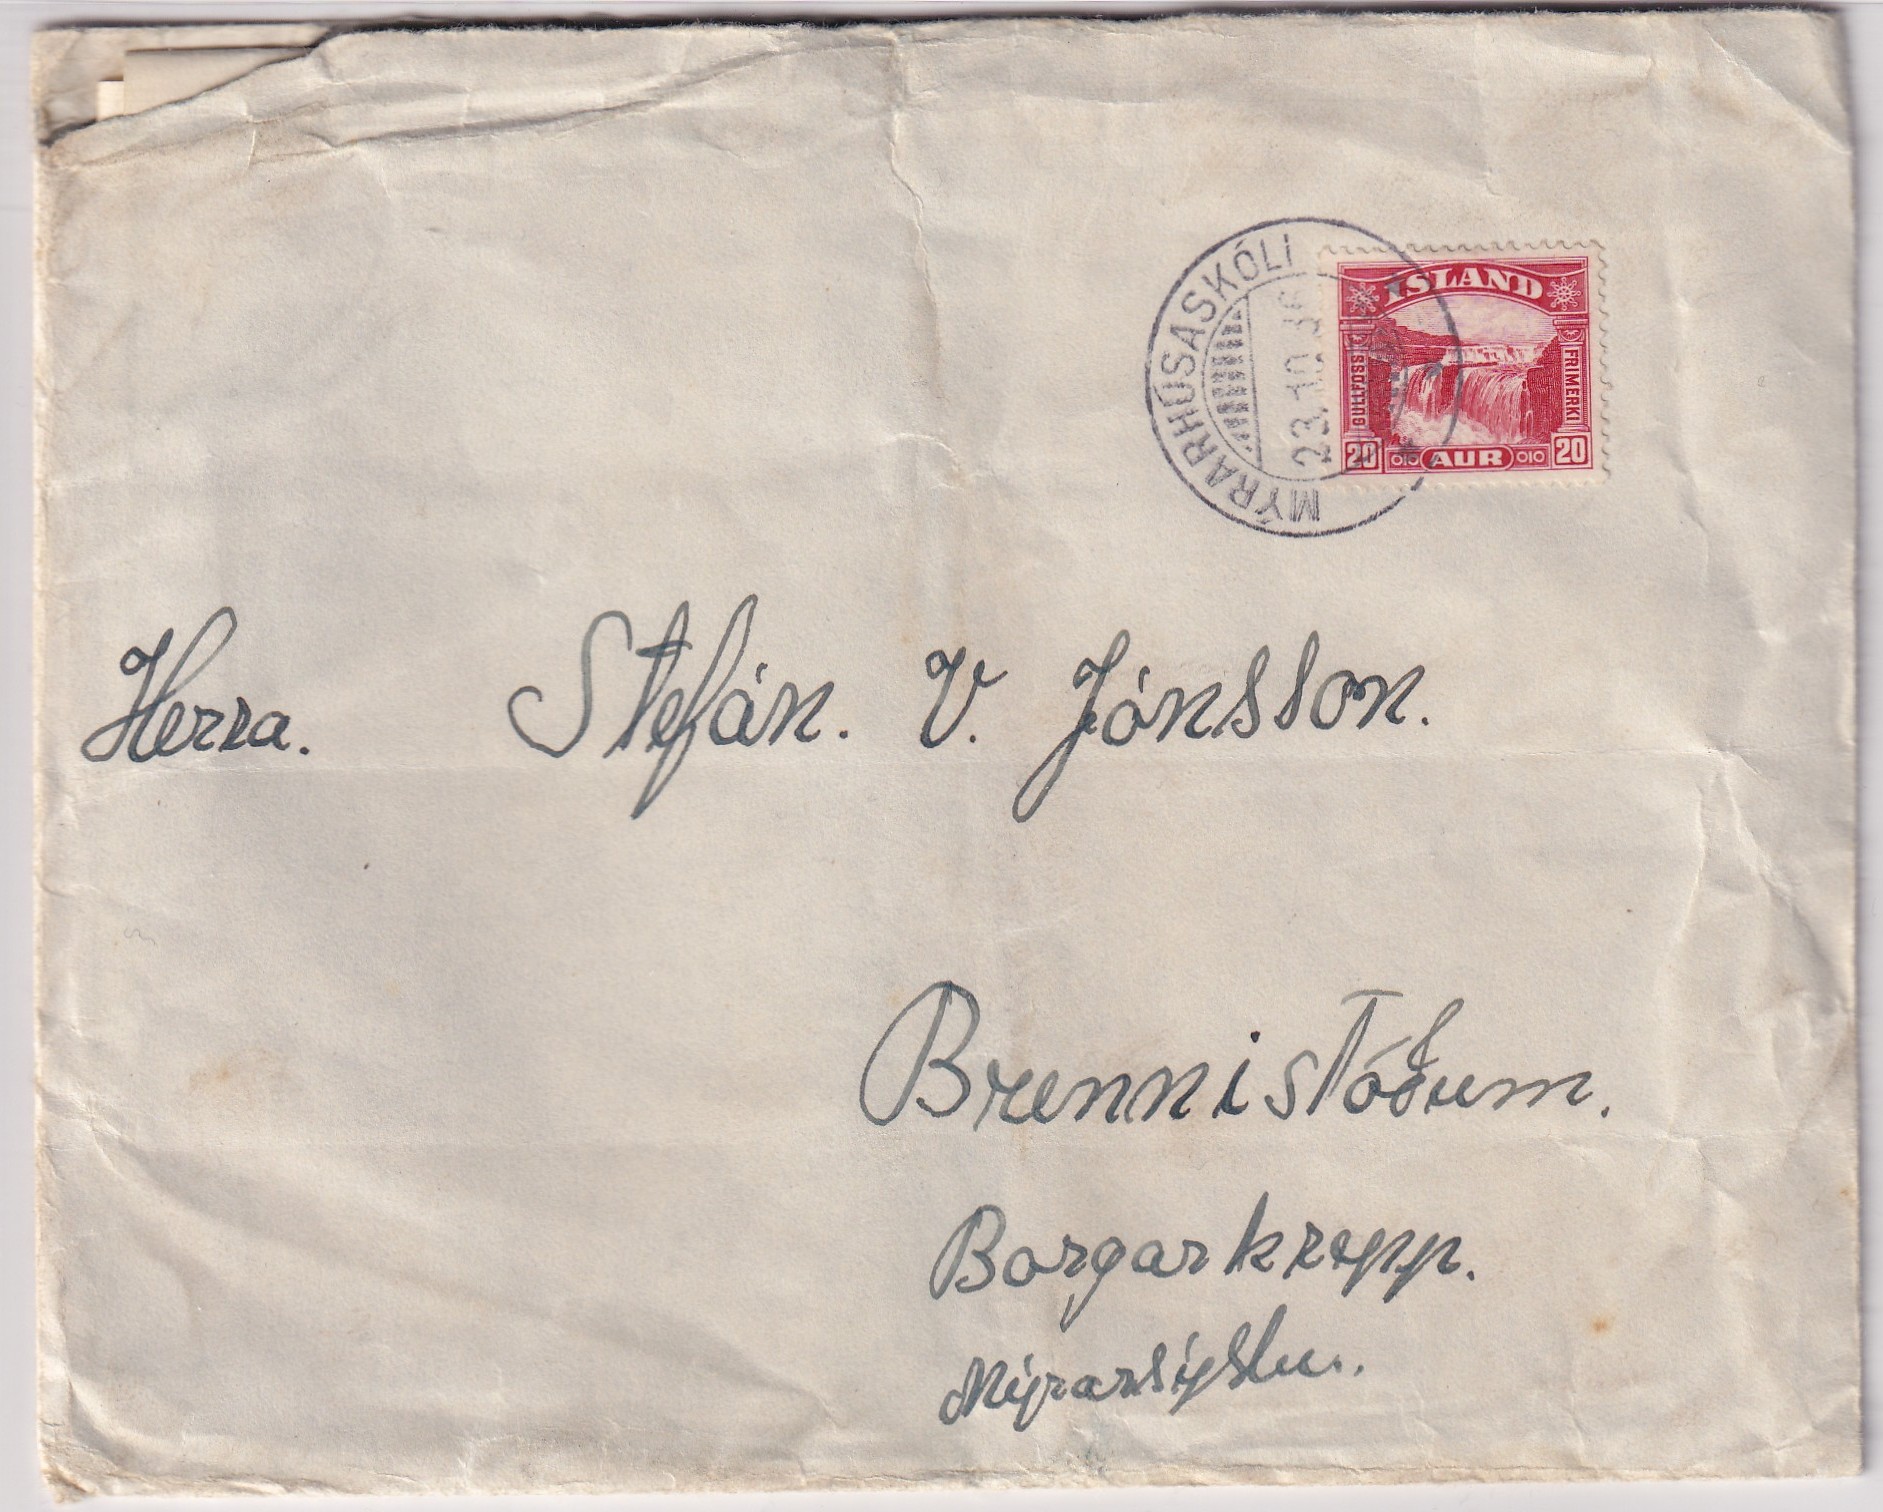 MÝRARHÚSASKÓLI
23.10.36
ÍSLAND
GULLFOSS
FRIMERKI
20 AUR 20
Herra. Stefán. V. Jónsson.
Brennistöðum.
Borgarhrepp.
Mýrarsýslu.